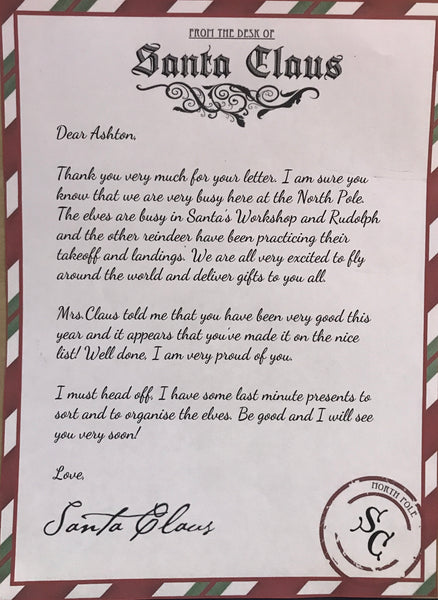 FROM THE DESK OF
Santa Claus
Dear Ashton,
Thank you very much for your letter. I am sure you
know that we are very busy here at the North Pole.
The elves are busy in Santa's Workshop and Rudolph
and the other reindeer have been practicing their
takeoff and landings. We are all very excited to fly
around the world and deliver gifts to you all.
Mrs.Claus told me that you have been very good this
year and it appears that you've made it on the nice
list! Well done, I am very proud of you.
I must head off, I have some last minute presents to
sort and to organise the elves. Be good and I will see
you very soon!
Love,
Santa Claus
NORTH POLE
SC